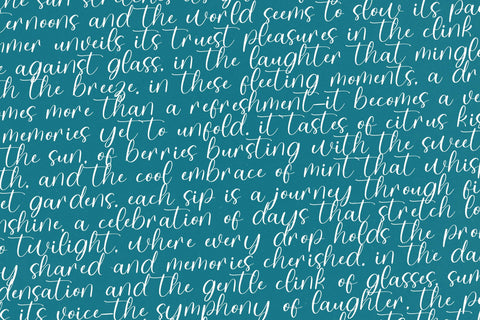 sun
ternoons and the world seems to slow its pa
mer unveils its truest pleasures in the clink
against glass, in the laughter that mingl
th the breeze. in these fleeting moments, a dr
omes more than a refreshment—it becomes a ve
memories yet to unfold. it tastes of citrus kis
the sun, of berries bursting with the sweet
th, and the cool embrace of mint that whis
et gardens. each sip is a journey through fi
nshine, a celebration of days that stretch lo
o twilight, where every drop holds the pro
y shared and memories cherished. in the da
densation and the gentle clink of glasses, sum
s its voice—the symphony of laughter, the p